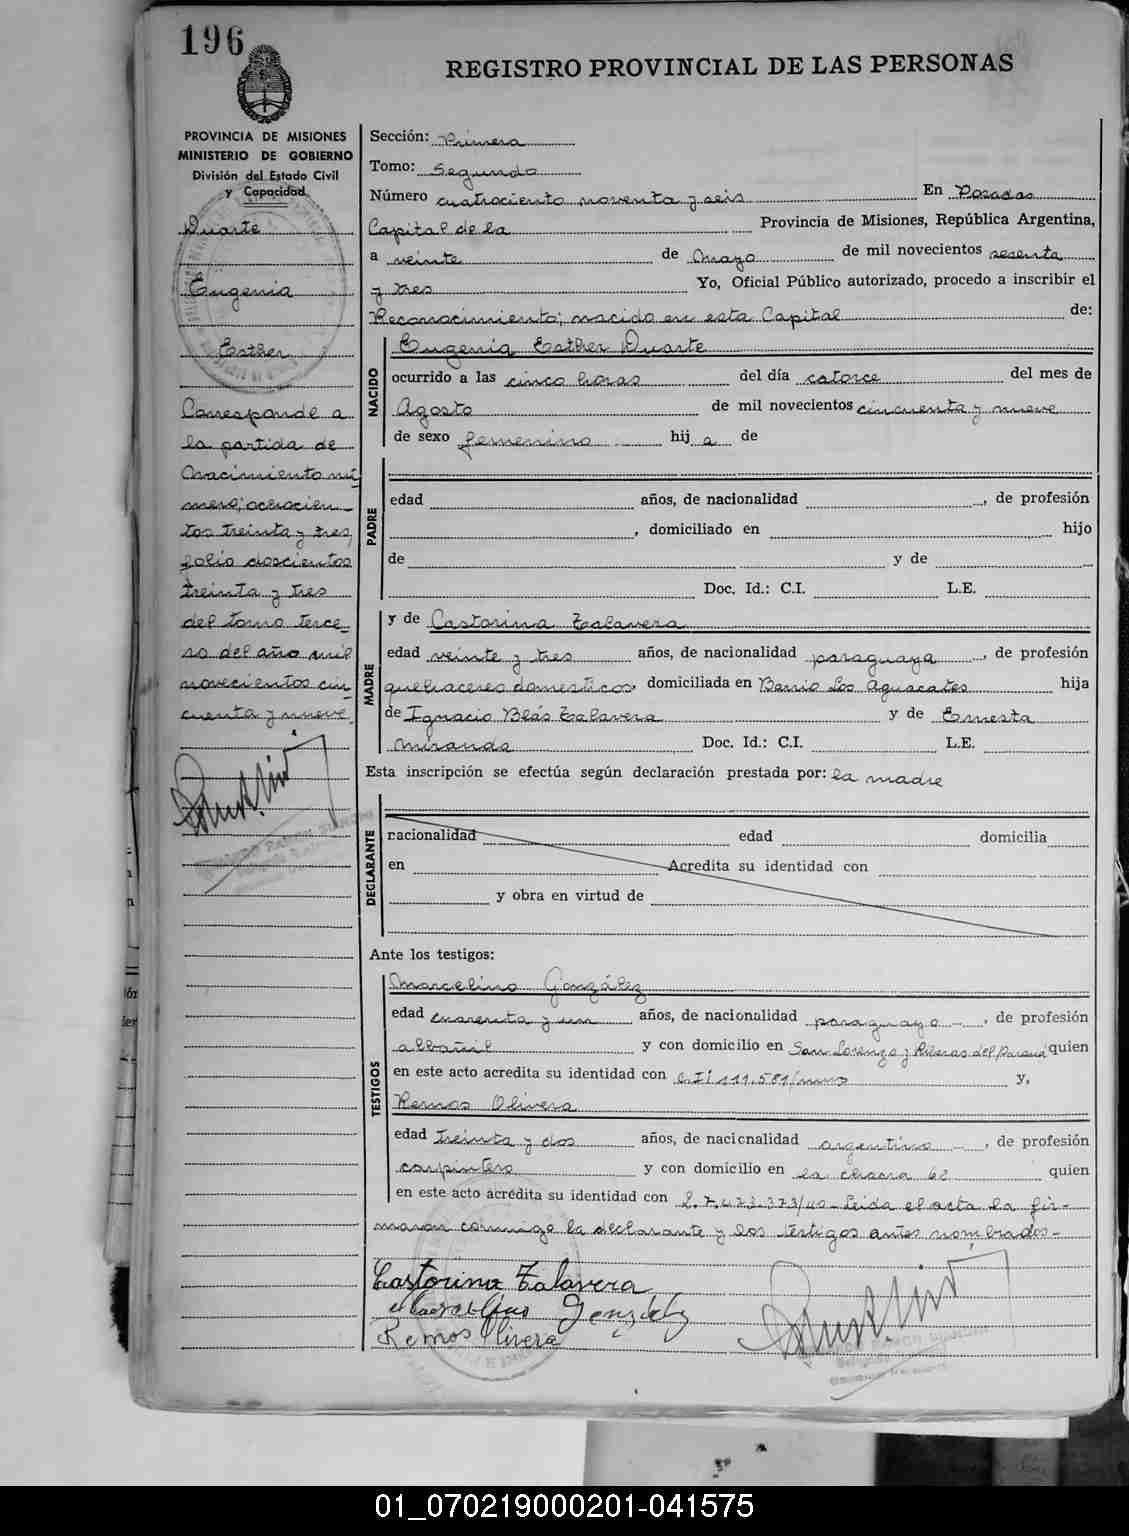 196
REGISTRO PROVINCIAL DE LAS PERSONAS
PROVINCIA DE MISIONES
MINISTERIO DE GOBIERNO
División del Estado Civil
y Capacidad
Duarte
Eugenia
Esther
Corresponde a
la partida de
Nacimiento nú-
mero; ochocien-
tos treinta y tres,
folio doscientos
treinta y tres
del tomo terce-
ro del año mil
novecientos cin-
cuenta y nueve.
Sección: Primera
Tomo: Segundo
Número cuatrociento noventa y seis En Posadas
Capital de la Provincia de Misiones, República Argentina,
a veinte de Mayo de mil novecientos sesenta
y tres Yo, Oficial Público autorizado, procedo a inscribir el
Reconocimiento; nacido en esta Capital de:
NACIDO
Eugenia Esther Duarte
ocurrido a las cinco horas del día catorce del mes de
Agosto de mil novecientos cincuenta y nueve
de sexo femenino hij a de
PADRE
edad años, de nacionalidad , de profesión
, domiciliado en hijo
de y de
Doc. Id.: C.I. L.E.
MADRE
y de Castorina Talavera
edad veinte y tres años, de nacionalidad paraguaya , de profesión
quehaceres domesticos, domiciliada en Barrio Los Aguacates hija
de Ignacio Blás Talavera y de Ernesta
Miranda Doc. Id.: C.I. L.E.
Esta inscripción se efectúa según declaración prestada por: la madre
DECLARANTE
nacionalidad edad domicilia
en Acredita su identidad con
y obra en virtud de
Ante los testigos:
TESTIGOS
Marcelino González
edad cuarenta y un años, de nacionalidad paraguayo , de profesión
albañil y con domicilio en San Lorenzo y Riberas del Paraná quien
en este acto acredita su identidad con C.I: 111.581/mnes y,
Remos Olivera
edad treinta y dos años, de nacionalidad argentino , de profesión
carpintero y con domicilio en la chacra 62 quien
en este acto acredita su identidad con L.7.473.373/40- Leida el acta la fir-
maron conmigo la declarante y los testigos antes nombrados-
Castorina Talavera
Marcelino González
Remos Olivera
01_070219000201-041575